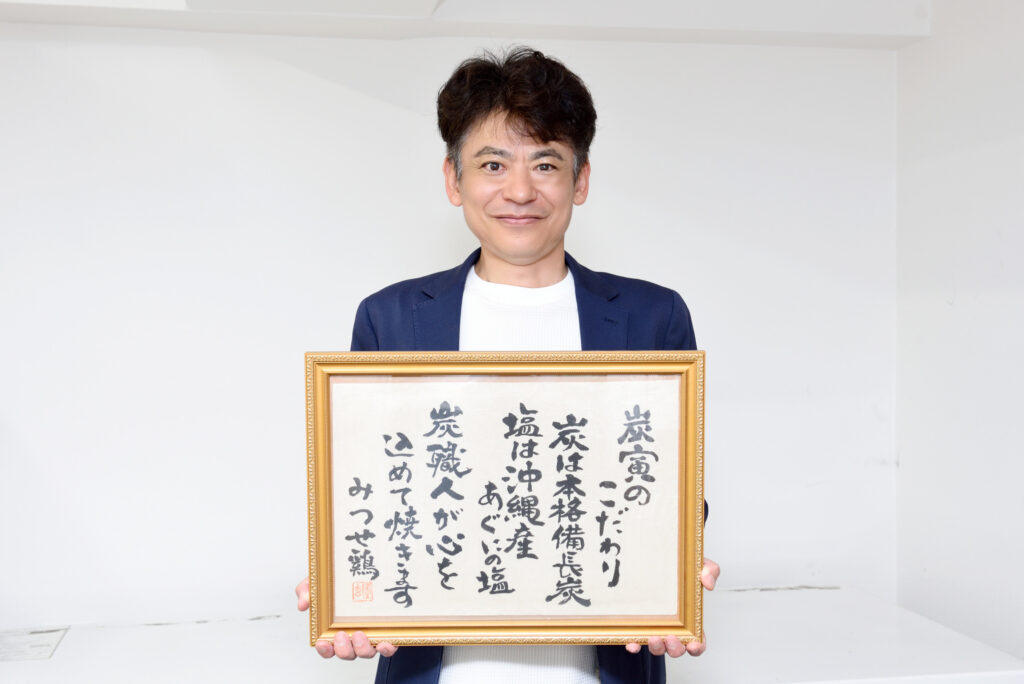 炭寅の
こだわり
炭は本格備長炭
塩は沖縄産
あぐにの塩
炭職人が心を
込めて焼きます
みつせ鶏